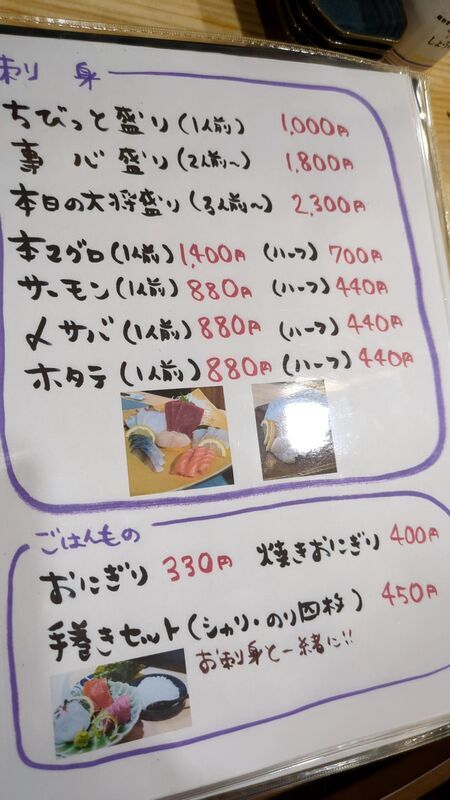 刺身
ちびっと盛り(1人前) 1,000円
専心盛り(2人前〜) 1,800円
本日の大将盛り(3人前〜) 2,300円
本マグロ(1人前) 1,400円 (ハーフ) 700円
サーモン(1人前) 880円 (ハーフ) 440円
〆サバ(1人前) 880円 (ハーフ) 440円
ホタテ(1人前) 880円 (ハーフ) 440円
ごはんもの
おにぎり 330円 焼きおにぎり 400円
手巻きセット(シャリ・のり四枚) 450円
お刺身と一緒に!!